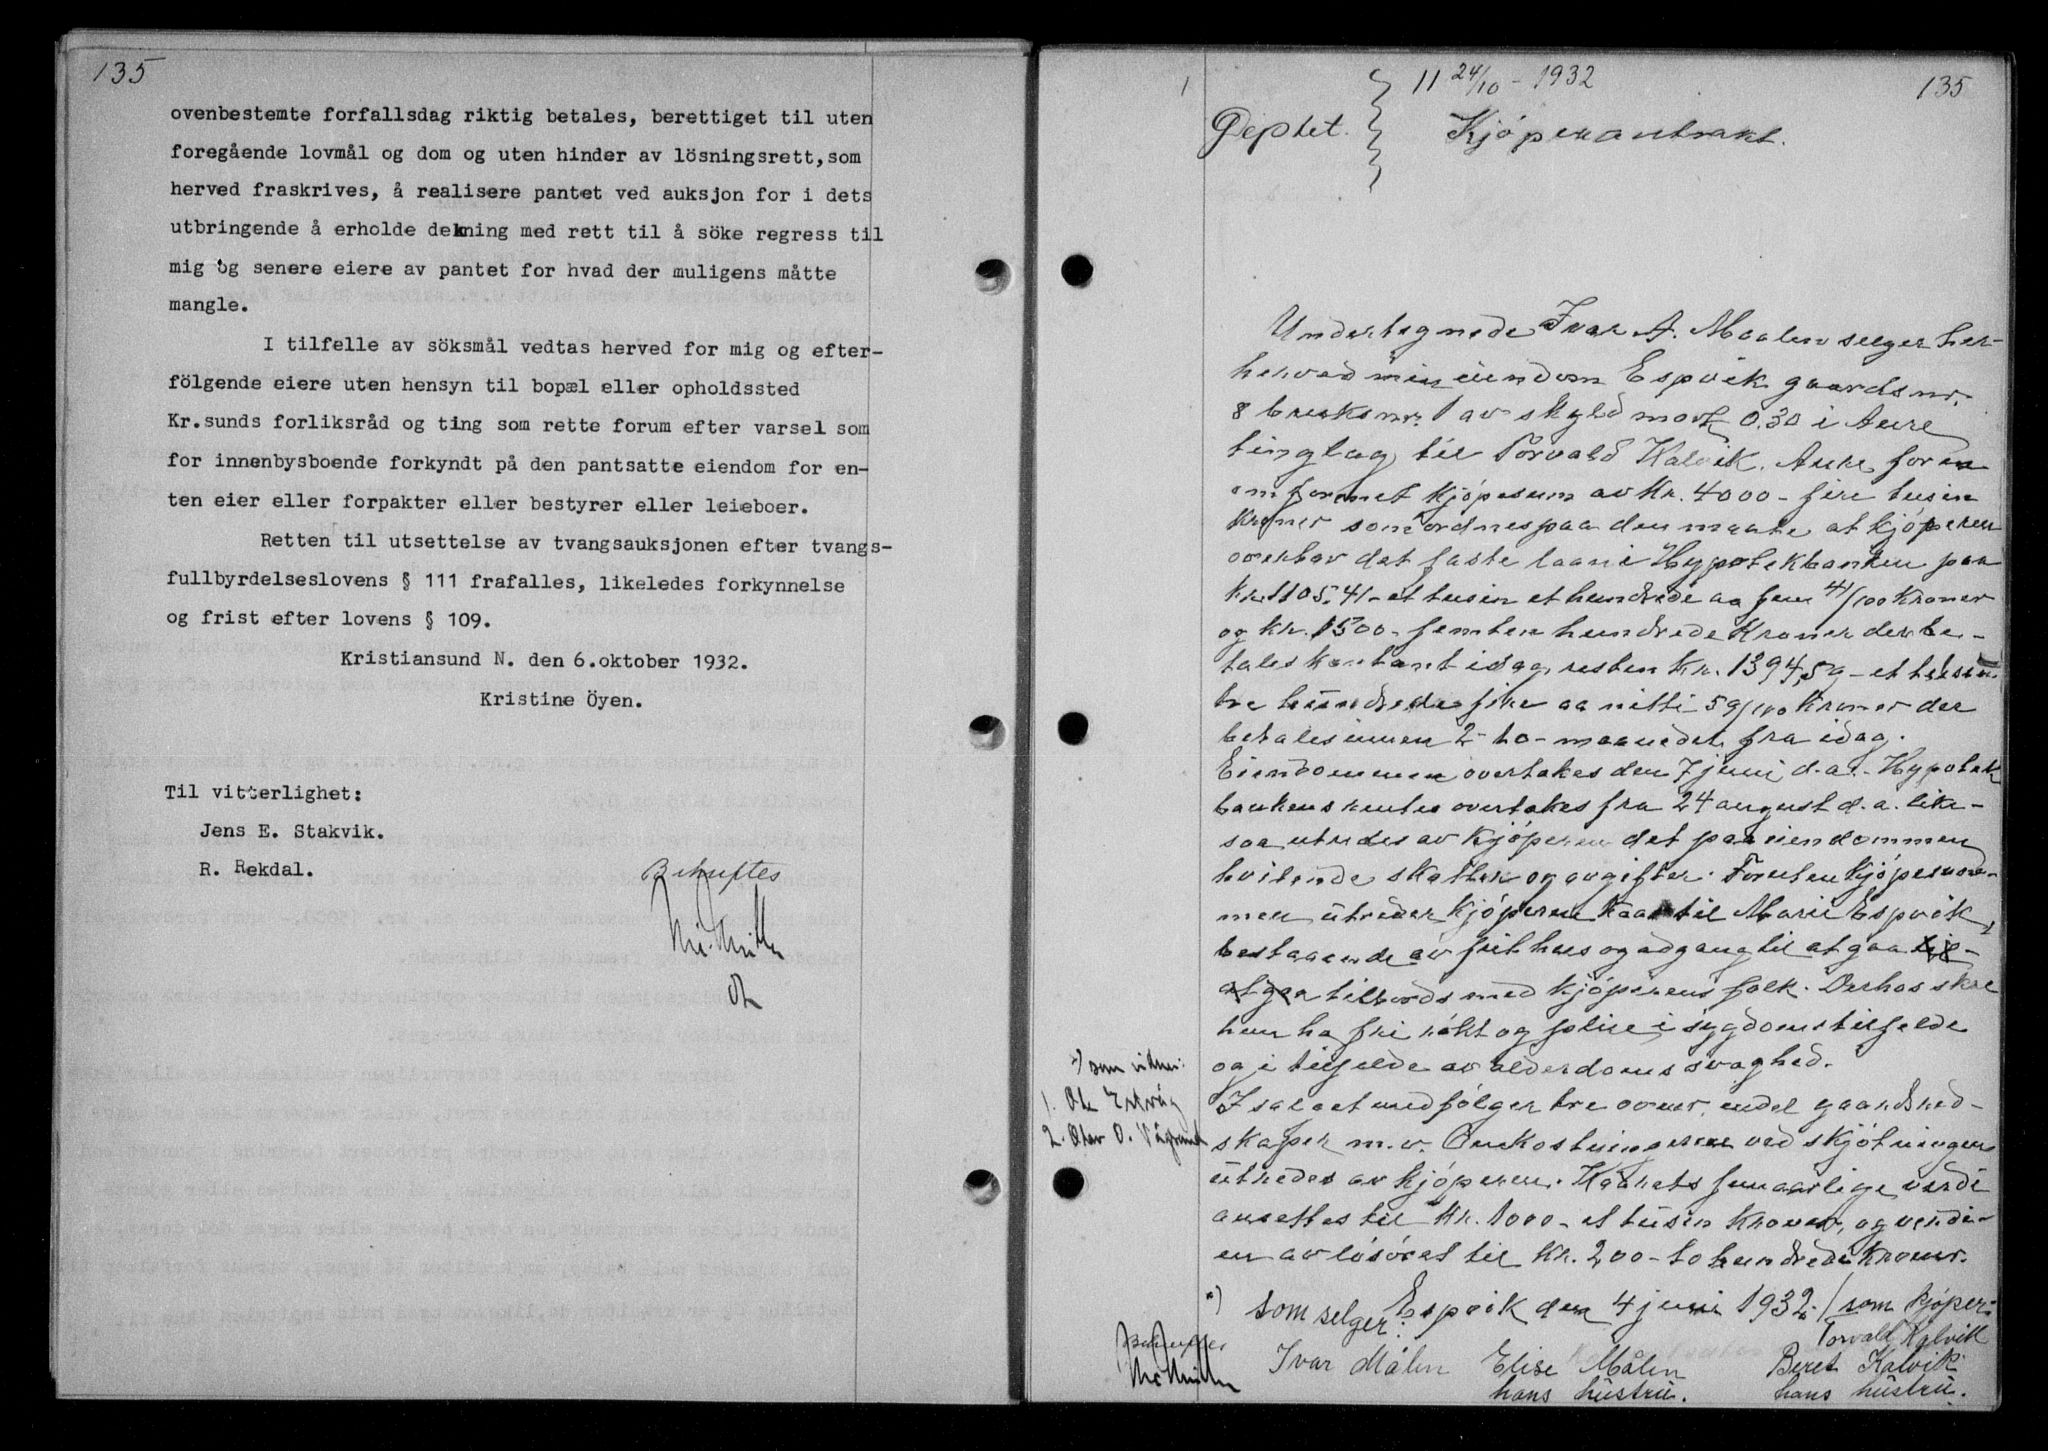 135
ovenbestemte forfallsdag riktig betales, berettiget til uten
foregående lovmål og dom og uten hinder av lösningsrett, som
herved fraskrives, å realisere pantet ved auksjon for i dets
utbringende å erholde dekning med rett til å söke regress til
mig og senere eiere av pantet for hvad der muligens måtte
mangle.
I tilfelle av söksmål vedtas herved for mig og efter-
fölgende eiere uten hensyn til bopæl eller opholdssted
Kr.sunds forliksråd og ting som rette forum efter varsel som
for innenbysboende forkyndt på den pantsatte eiendom for en-
ten eier eller forpakter eller bestyrer eller leieboer.
Retten til utsettelse av tvangsauksjonen efter tvangs-
fullbyrdelseslovens § 111 frafalles, likeledes forkynnelse
og frist efter lovens § 109.
Kristiansund N. den 6.oktober 1932.
Kristine Öyen.
Til vitterlighet:
Jens E. Stakvik.
R. Rekdal.
Bekreftes
1
11 24/10 - 1932
135
Kjöpekontrakt.
Undertegnede Ivar A. Maalen selger her-
herved min eiendom Espvik gaardsnr.
8 bruksnr. 1 av skyld mark 0.30 i Aure
tinglag til Torvald Kalvik, Aure for en
omforenet kjöpesum av Kr. 4000 - fire tusin
kroner som ordnes paa den maate at kjöperen
overtar det faste laan i Hypotekbanken paa
kr. 1105.41 - et tusin et hundrede aa fem 41/100 Kroner
og kr. 1500 - femten hundrede Kroner der be-
tales kontant idag, resten kr. 1394,59 - et tusin
tre hundrede fire aa nitti 59/100 Kroner der
betales innen 2 - to - maaneder fra idag.
Eiendommen overtakes den 7 juni d.a. - Hypotek
bankens renter overtakes fra 24 august d.a. like-
saa utredes av kjöperen det paa eiendommen
hvilende skatter og avgifter. Foruten kjöpesum-
men utreder kjöperen kaar til Marie Espvik,
bestaaende av frit hus og adgang til at gaa til
at gaa tilbords med kjöperens folk. Derhos skal
hun ha fri rökt og pleie i sygdomstilfelde
og i tilfelde av alderdomssvaghed.
I salget medfölger tre ovner, endel gaardsred-
skaper m.v. Omkostningerne ved skjötningen
utredes av kjöperen. Kaarets femaarlige verdi
ansettes til Kr. 1000 - et tusin kroner, og verdi-
en av lösöret til Kr. 200 - to hundrede Kroner.
Espvik den 4 juni 1932.
*) som vitner:
1.
2. Olav O.
*) som selger:
Ivar Målen Elise Målen
hans hustru.
som kjöper:
Torvald Kalvik
Beret Kalvik
hans hustru.
Bekreftes